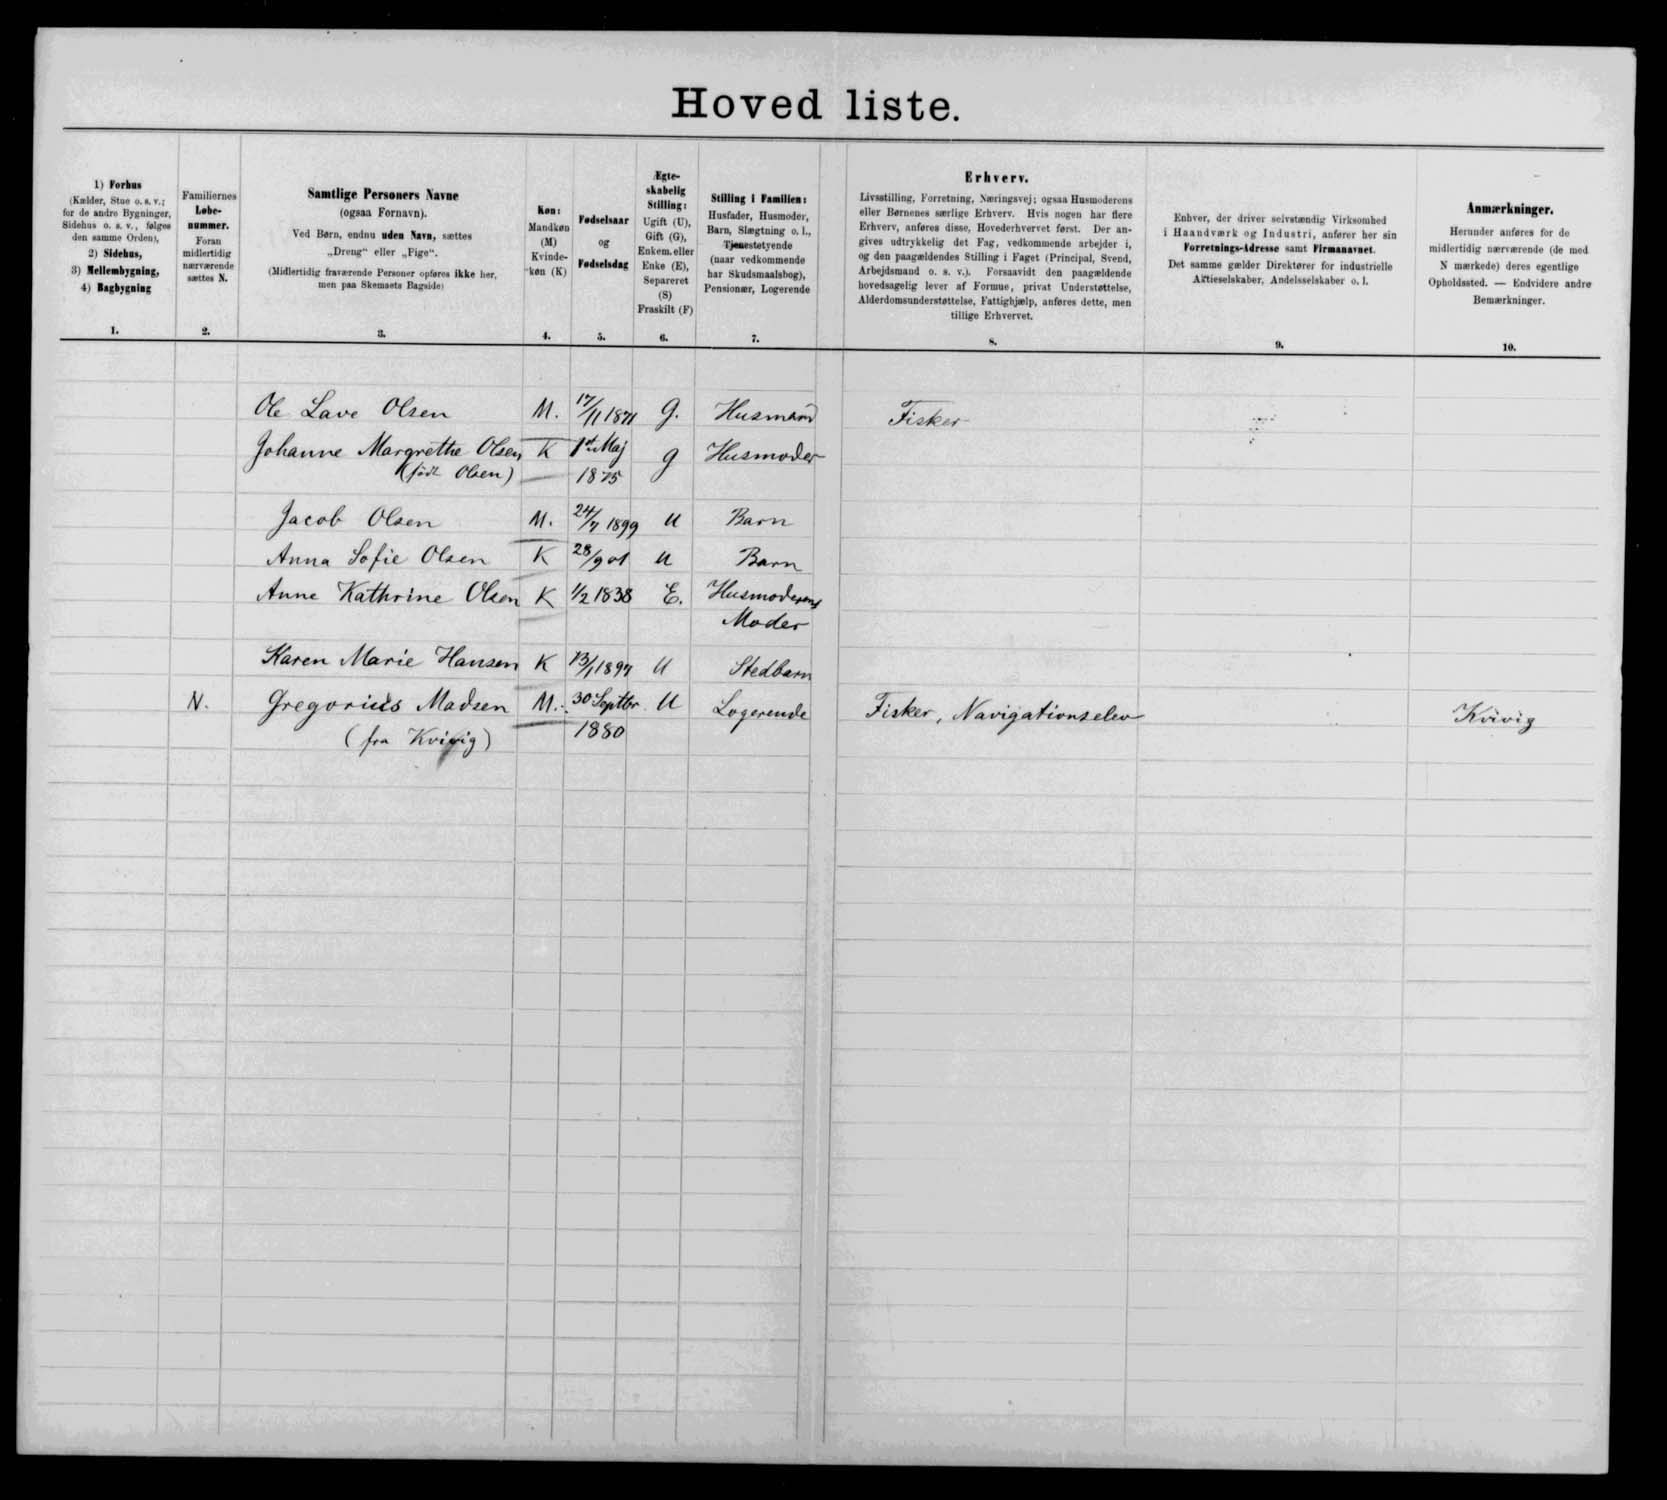 Hoved liste.
1) Forhus
(Kælder, Stue o. s. v.;
for de andre Bygninger,
Sidehus o. s. v., følges
den samme Orden),
2) Sidehus,
3) Mellembygning,
4) Bagbygning
1.
Familiernes
Løbe-
nummer.
Foran
midlertidig
nærværende
sættes N.
2.
Samtlige Personers Navne
(ogsaa Fornavn).
Ved Børn, endnu uden Navn, sættes
„Dreng“ eller „Pige“.
(Midlertidig fraværende Personer opføres ikke her,
men paa Skemaets Bagside)
3.
Køn:
Mandkøn
(M)
Kvinde-
køn (K)
4.
Fødselsaar
og
Fødselsdag
5.
Ægte-
skabelig
Stilling:
Ugift (U),
Gift (G),
Enkem. eller
Enke (E),
Separeret
(S)
Fraskilt (F)
6.
Stilling i Familien:
Husfader, Husmoder,
Barn, Slægtning o. l.,
Tjenestetyende
(naar vedkommende
har Skudsmaalsbog),
Pensionær, Logerende
7.
Erhverv.
Livsstilling, Forretning, Næringsvej; ogsaa Husmoderens
eller Børnenes særlige Erhverv. Hvis nogen har flere
Erhverv, anføres disse, Hovederhvervet først. Der an-
gives udtrykkelig det Fag, vedkommende arbejder i,
og den paagældendes Stilling i Faget (Principal, Svend,
Arbejdsmand o. s. v.). Forsaavidt den paagældende
hovedsagelig lever af Formue, privat Understøttelse,
Alderdomsunderstøttelse, Fattighjælp, anføres dette, men
tillige Erhvervet.
8.
Enhver, der driver selvstændig Virksomhed
i Haandværk og Industri, anfører her sin
Forretnings-Adresse samt Firmanavnet.
Det samme gælder Direktører for industrielle
Aktieselskaber, Andelsselskaber o. l.
9.
Anmærkninger.
Herunder anføres for de
midlertidig nærværende (de med
N mærkede) deres egentlige
Opholdssted. — Endvidere andre
Bemærkninger.
10.
Ole Lave Olsen M. 17/11 1871 G. Husmand Fisker
Johanne Margrethe Olsen K 1st Maj g Husmoder
(født Olsen) 1875
Jacob Olsen M. 24/7 1899 U Barn
Anna Sofie Olsen K 28/9 01 U Barn
Anne Kathrine Olsen K 1/2 1838 E. Husmoderens
Moder
Karen Marie Hansen K 13/1 1897 U Stedbarn
N. Gregorius Madsen M. 30 Septbr. U Logerende Fisker, Navigationselev Kvivig
(fra Kvivig) 1880